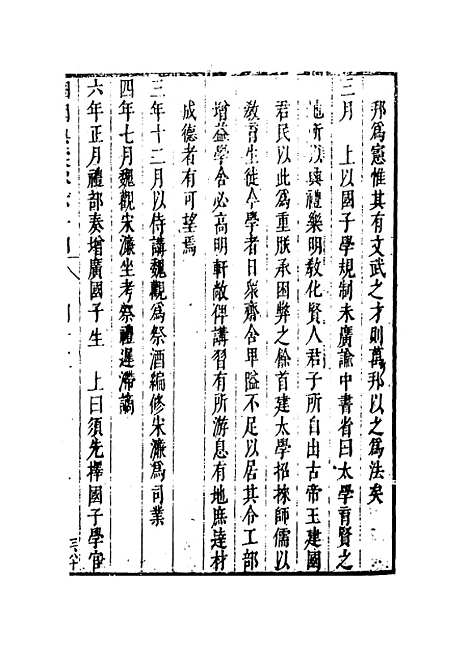 邦爲憲惟其有文武之才則萬邦以之爲法矣
三月　上以國子學規制未廣諭中書省曰太學育賢之
地所以興禮樂明敎化賢人君子所自出古帝王建國
君民以此爲重朕承困弊之餘首建太學招徠師儒以
敎育生徒今學者日衆齋舍卑隘不足以居其令工部
增益學舍必高明軒敞俾講習有所游息有地庶達材
成德者有可望焉
三年十二月以侍講魏觀爲祭酒編修宋濂爲司業
四年七月魏觀宋濂坐考祭禮遲滯謫
六年正月禮部奏增廣國子生　上曰須先擇國子學官